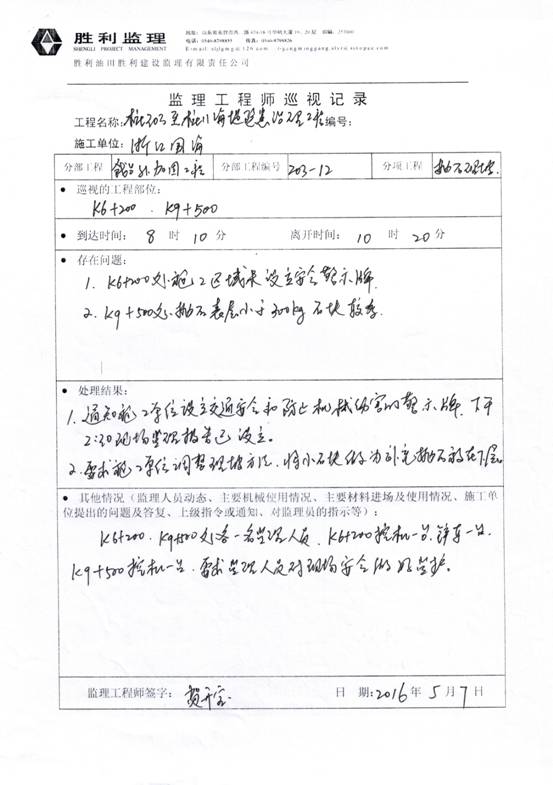 胜利监理
SHENGLI PROJECT MANAGEMENT
胜利油田胜利建设监理有限责任公司
监理工程师巡视记录
工程名称:桩303至桩11海堤隐患治理工程编号:
施工单位:浙江围海
分部工程 加固工程 分部工程编号 203-12 分项工程 抛石理坡
• 巡视的工程部位:
K6+200 . K9+500
• 到达时间: 8 时 10 分 离开时间: 10 时 20 分
• 存在问题:
1. K6+200处施工区域未设立安全警示牌.
2. K9+500处抛石表层小于300kg石块较多.
• 处理结果:
1. 通知施工单位设立交通安全和防止机械伤害的警示牌. 下午
2:30现场监理报告已设立。
2. 要求施工单位调整理坡方法. 将小石块做为补充抛石放在下层.
• 其他情况（监理人员动态、主要机械使用情况、主要材料进场及使用情况、施工单
位提出的问题及答复、上级指令或通知、对监理员的指示等）:
K6+200. K9+500处各一名监理人员. K6+200挖机一台. 铲车一台.
K9+500挖机一台. 要求监理人员对现场安全做好监护。
监理工程师签字: 日 期:2016年 5 月 7 日